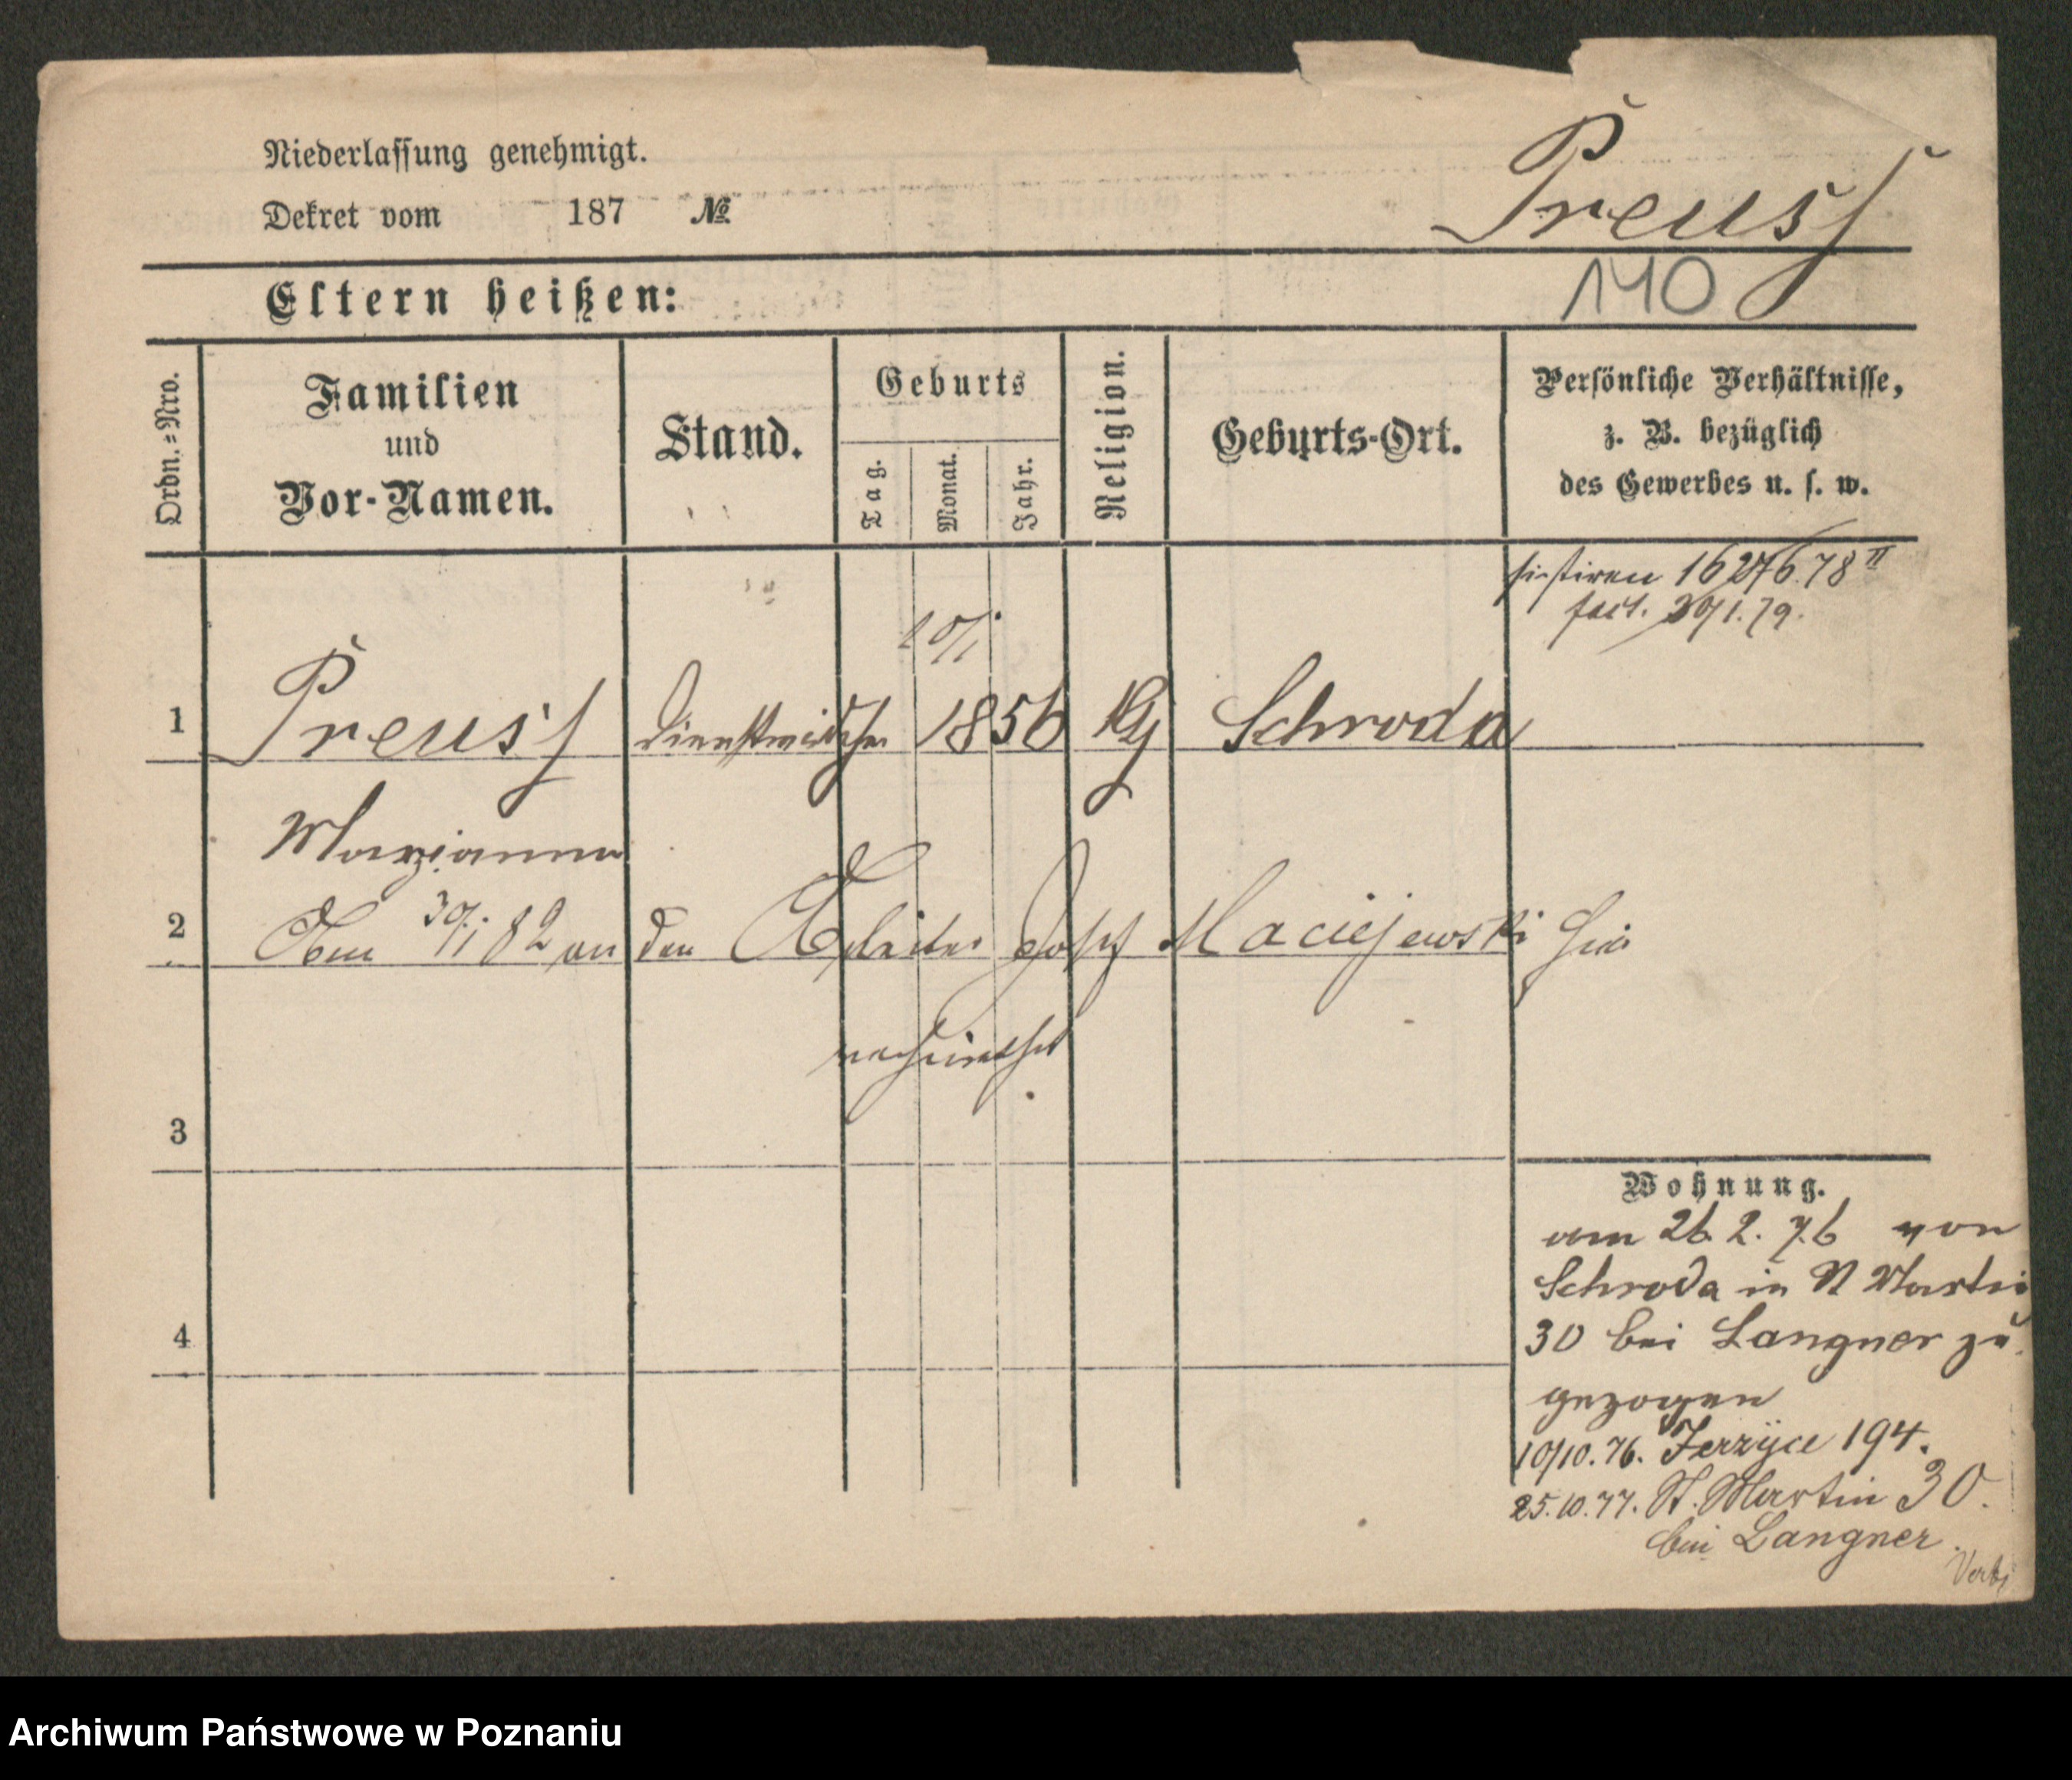 Niederlassung genehmigt.
Preuss
Dekret vom 187 №
Eltern heißen:
140
Ordn.=Nro.
Familien
und
Vor-Namen.
Stand.
Geburts
Tag.
Monat.
Jahr.
Religion.
Geburts-Ort.
Persönliche Verhältnisse,
z. B. bezüglich
des Gewerbes u. s. w.
sistiren 16276.78 II
fact. 30/1.79.
1 Preuss Dienstmädchen 1856 Schroda
Maryanna
2 30/1 82 an den Arbeiter Josef Maciejewski hier
verheirathet
3
4
Wohnung.
am 26.2.76 von
Schroda in St Martin
30 bei Langner zu
gezogen
10/10.76. Jerzyce 194.
25.10.77. St. Martin 30.
bei Langner.
Archiwum Państwowe w Poznaniu